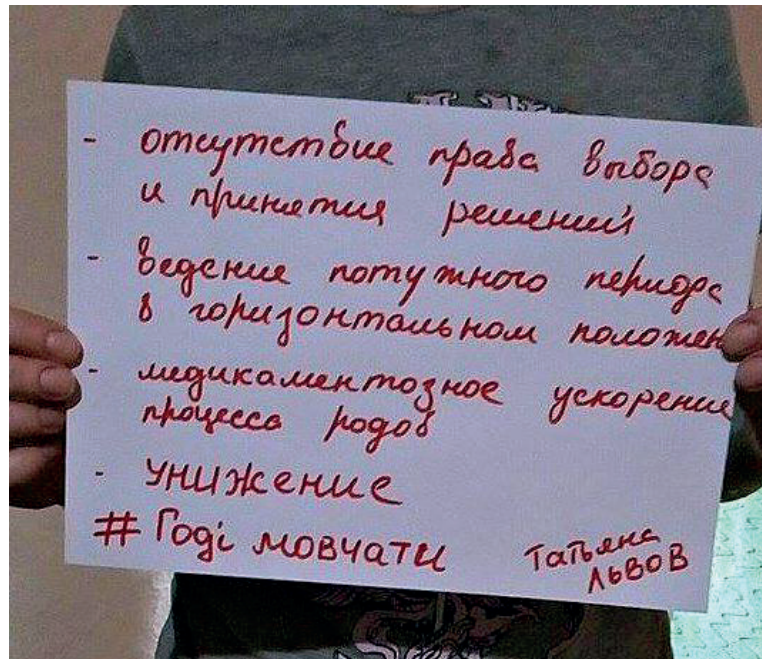 - отсутствие права выбора
и принятия решений
- ведение потужного периода
в горизонтальном положен
- медикаментозное ускорение
процесса родов
- унижение
# Годі мовчати
Татьяна
Львов